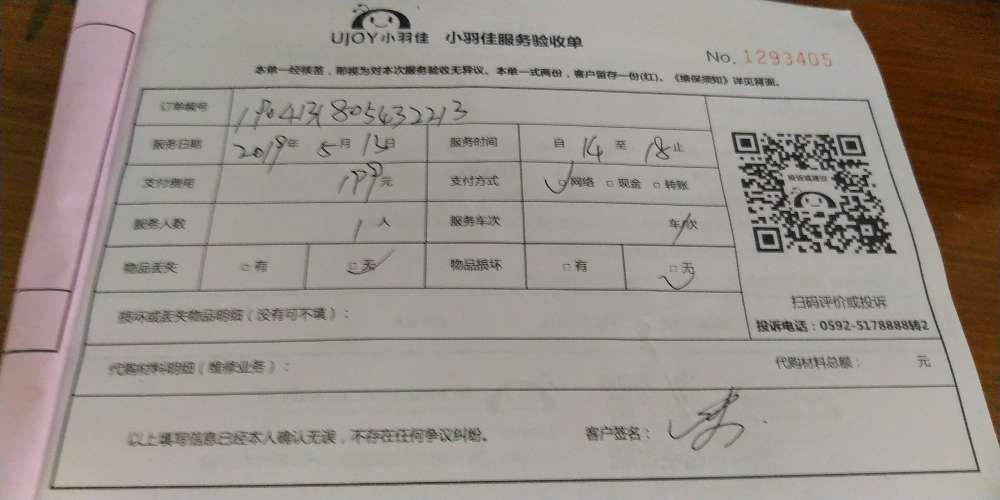 UJOY小羽佳 小羽佳服务验收单
No. 1293405
本单一经核签，即视为对本次服务验收无异议。本单一式两份，客户留存一份(红)。《维保须知》详见背面。
订单编号 1904131805432213
服务日期 2019年 5月 13日 服务时间 自 14 至 18 止
支付费用 199元 支付方式 □网络 □现金 □转账
服务人数 1人 服务车次 车/次
物品丢失 □有 □无 物品损坏 □有 □无
投诉或建议
扫码评价或投诉
投诉电话：0592-5178888转2
损坏或丢失物品明细（没有可不填）：
代购材料明细（维修业务）： 代购材料总额： 元
以上填写信息已经本人确认无误，不存在任何争议纠纷。 客户签名：